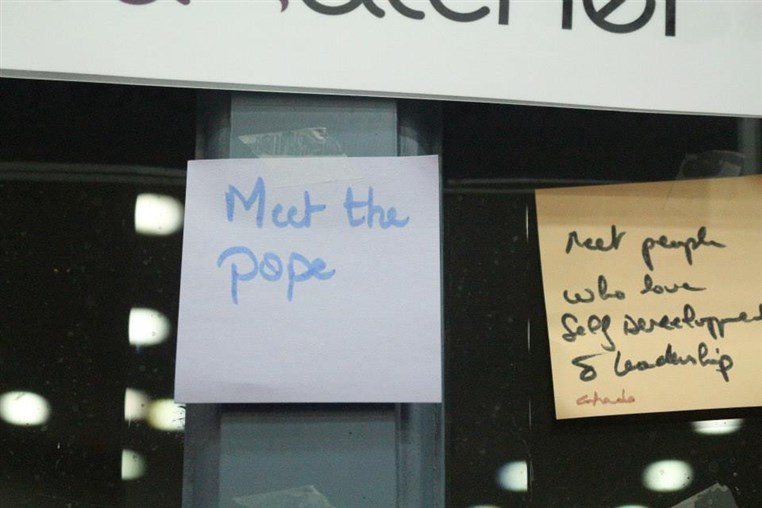 Meet the
pope
Meet people
who love
Self Development
& leadership